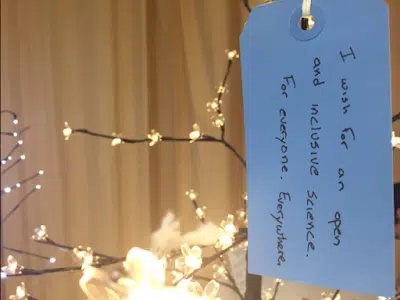 I wish for an open
and inclusive science.
For everyone. Everywhere.